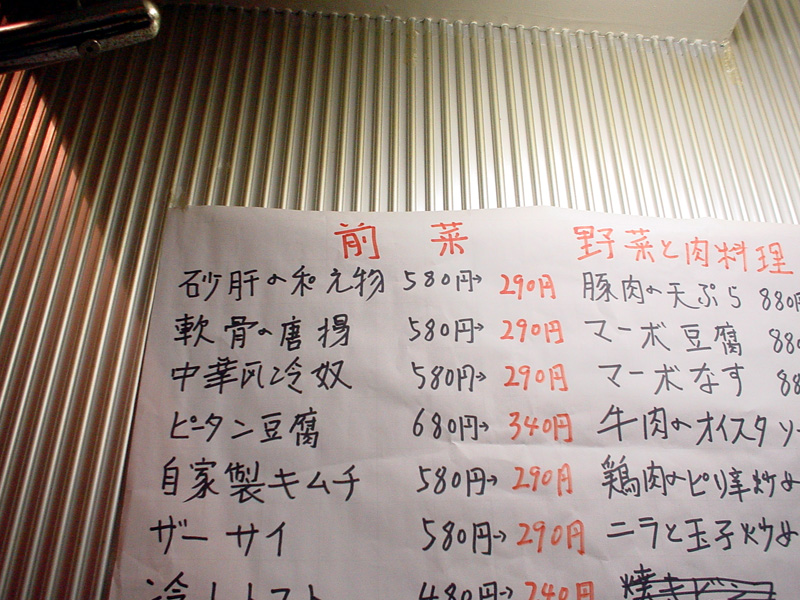 前菜
砂肝の和え物 580円→290円
軟骨の唐揚 580円→290円
中華風冷奴 580円→290円
ピータン豆腐 680円→340円
自家製キムチ 580円→290円
ザーサイ 580円→290円
冷トマト 480円→240円
野菜と肉料理
豚肉の天ぷら 880円
マーボ豆腐 880
マーボなす 88
牛肉のオイスタソー
鶏肉のピリ辛炒め
ニラと玉子炒め